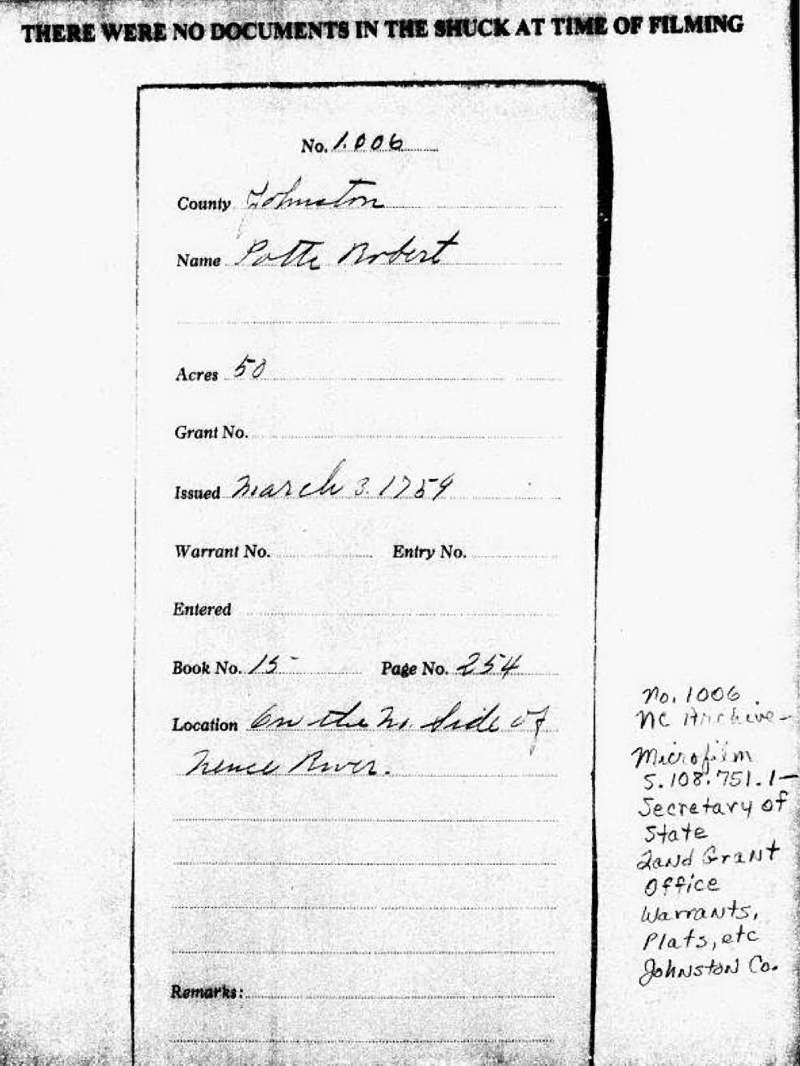 THERE WERE NO DOCUMENTS IN THE SHUCK AT TIME OF FILMING
No. 1.006
County Johnston
Name Potte Robert
Acres 50
Grant No.
Issued March 3. 1759
Warrant No. Entry No.
Entered
Book No. 15 Page No. 254
Location On the No. Side of
Neuce River.
Remarks:
No. 1006
NC Archive-
Microfilm
S.108.751.1-
Secretary of
State
Land Grant
Office
Warrants,
Plats, etc
Johnston Co.